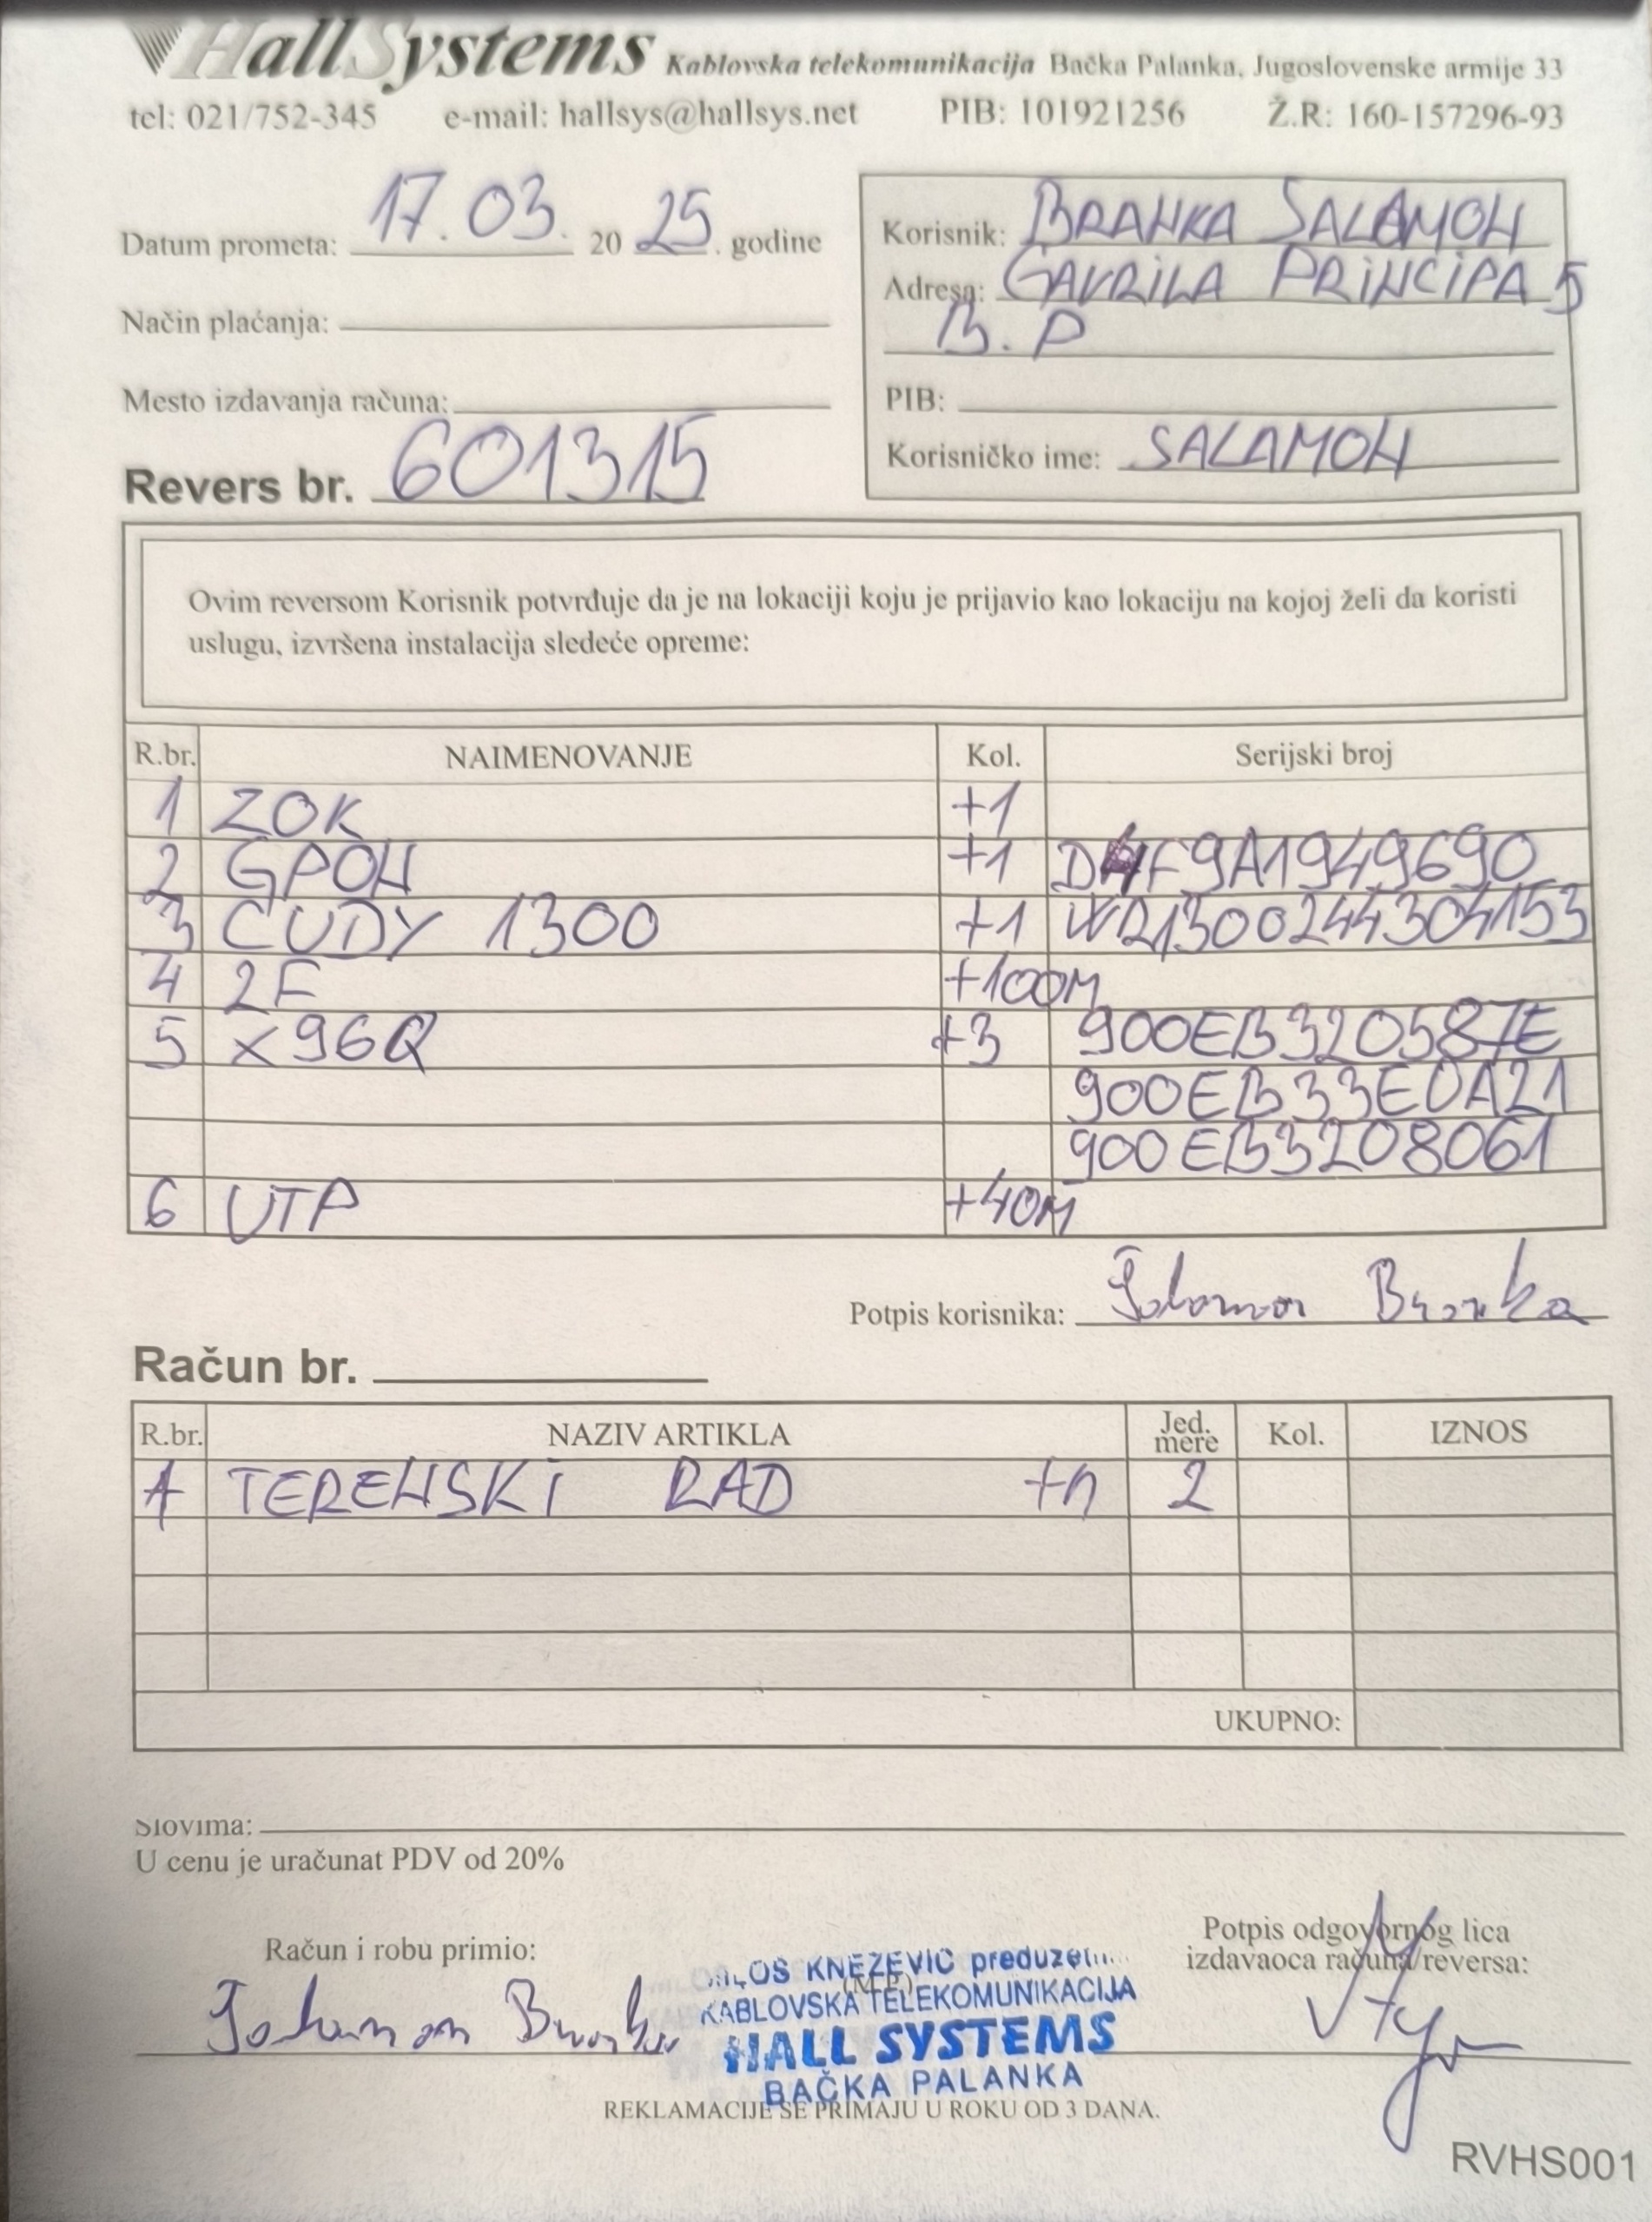 HallSystems Kablovska telekomunikacija Bačka Palanka, Jugoslovenske armije 33
tel: 021/752-345 e-mail: hallsys@hallsys.net PIB: 101921256 Ž.R: 160-157296-93
Datum prometa: 17.03. 20 25. godine
Korisnik: BRANKA SALAMON
Adresa: GAVRILA PRINCIPA 5
B.P
Način plaćanja:
Mesto izdavanja računa:
PIB:
Korisničko ime: SALAMON
Revers br. 601315
Ovim reversom Korisnik potvrđuje da je na lokaciji koju je prijavio kao lokaciju na kojoj želi da koristi
uslugu, izvršena instalacija sledeće opreme:
R.br. NAIMENOVANJE Kol. Serijski broj
1 ZOK +1
2 GPON +1
3 CUDY 1300 +1 WR1300244304153
4 2F +100M
5 X96Q +3 900EB320587E
900EB33E0A21
900EB3208061
6 UTP +40M
Potpis korisnika: Salamon Branka
Račun br.
R.br. NAZIV ARTIKLA Jed. mere Kol. IZNOS
1 TERENSKI RAD +h 2
UKUPNO:
Slovima:
U cenu je uračunat PDV od 20%
Račun i robu primio:
Salamon Branka
MILOŠ KNEŽEVIĆ preduzetn...
(M.P.)
KABLOVSKA TELEKOMUNIKACIJA
HALL SYSTEMS
BAČKA PALANKA
Potpis odgovornog lica
izdavaoca računa/reversa:
REKLAMACIJE SE PRIMAJU U ROKU OD 3 DANA.
RVHS001